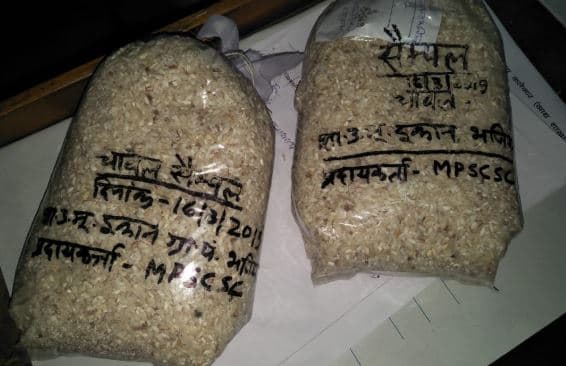 चावल सैम्पल
दिनांक - 16/3/2019
शा.उ.मू. दुकान ग्रा.पं.
प्रदायकर्ता - MPSCSC
सैम्पल
16/3/2019
चावल -
शा.उ.मू. दुकान
प्रदायकर्ता - MPSCSC